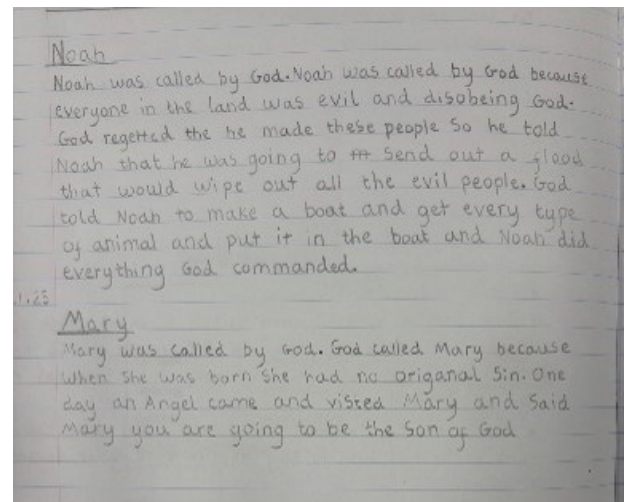 Noah
Noah was called by God. Noah was called by God because
everyone in the land was evil and disobeing God.
God regetted the he made these people so he told
Noah that he was going to send out a flood
that would wipe out all the evil people. God
told Noah to make a boat and get every type
of animal and put it in the boat and Noah did
everything God commanded.
1.25
Mary
Mary was called by God. God called Mary because
when she was born she had no origanal Sin. One
day an Angel came and visted Mary and said
Mary you are going to be the Son of God